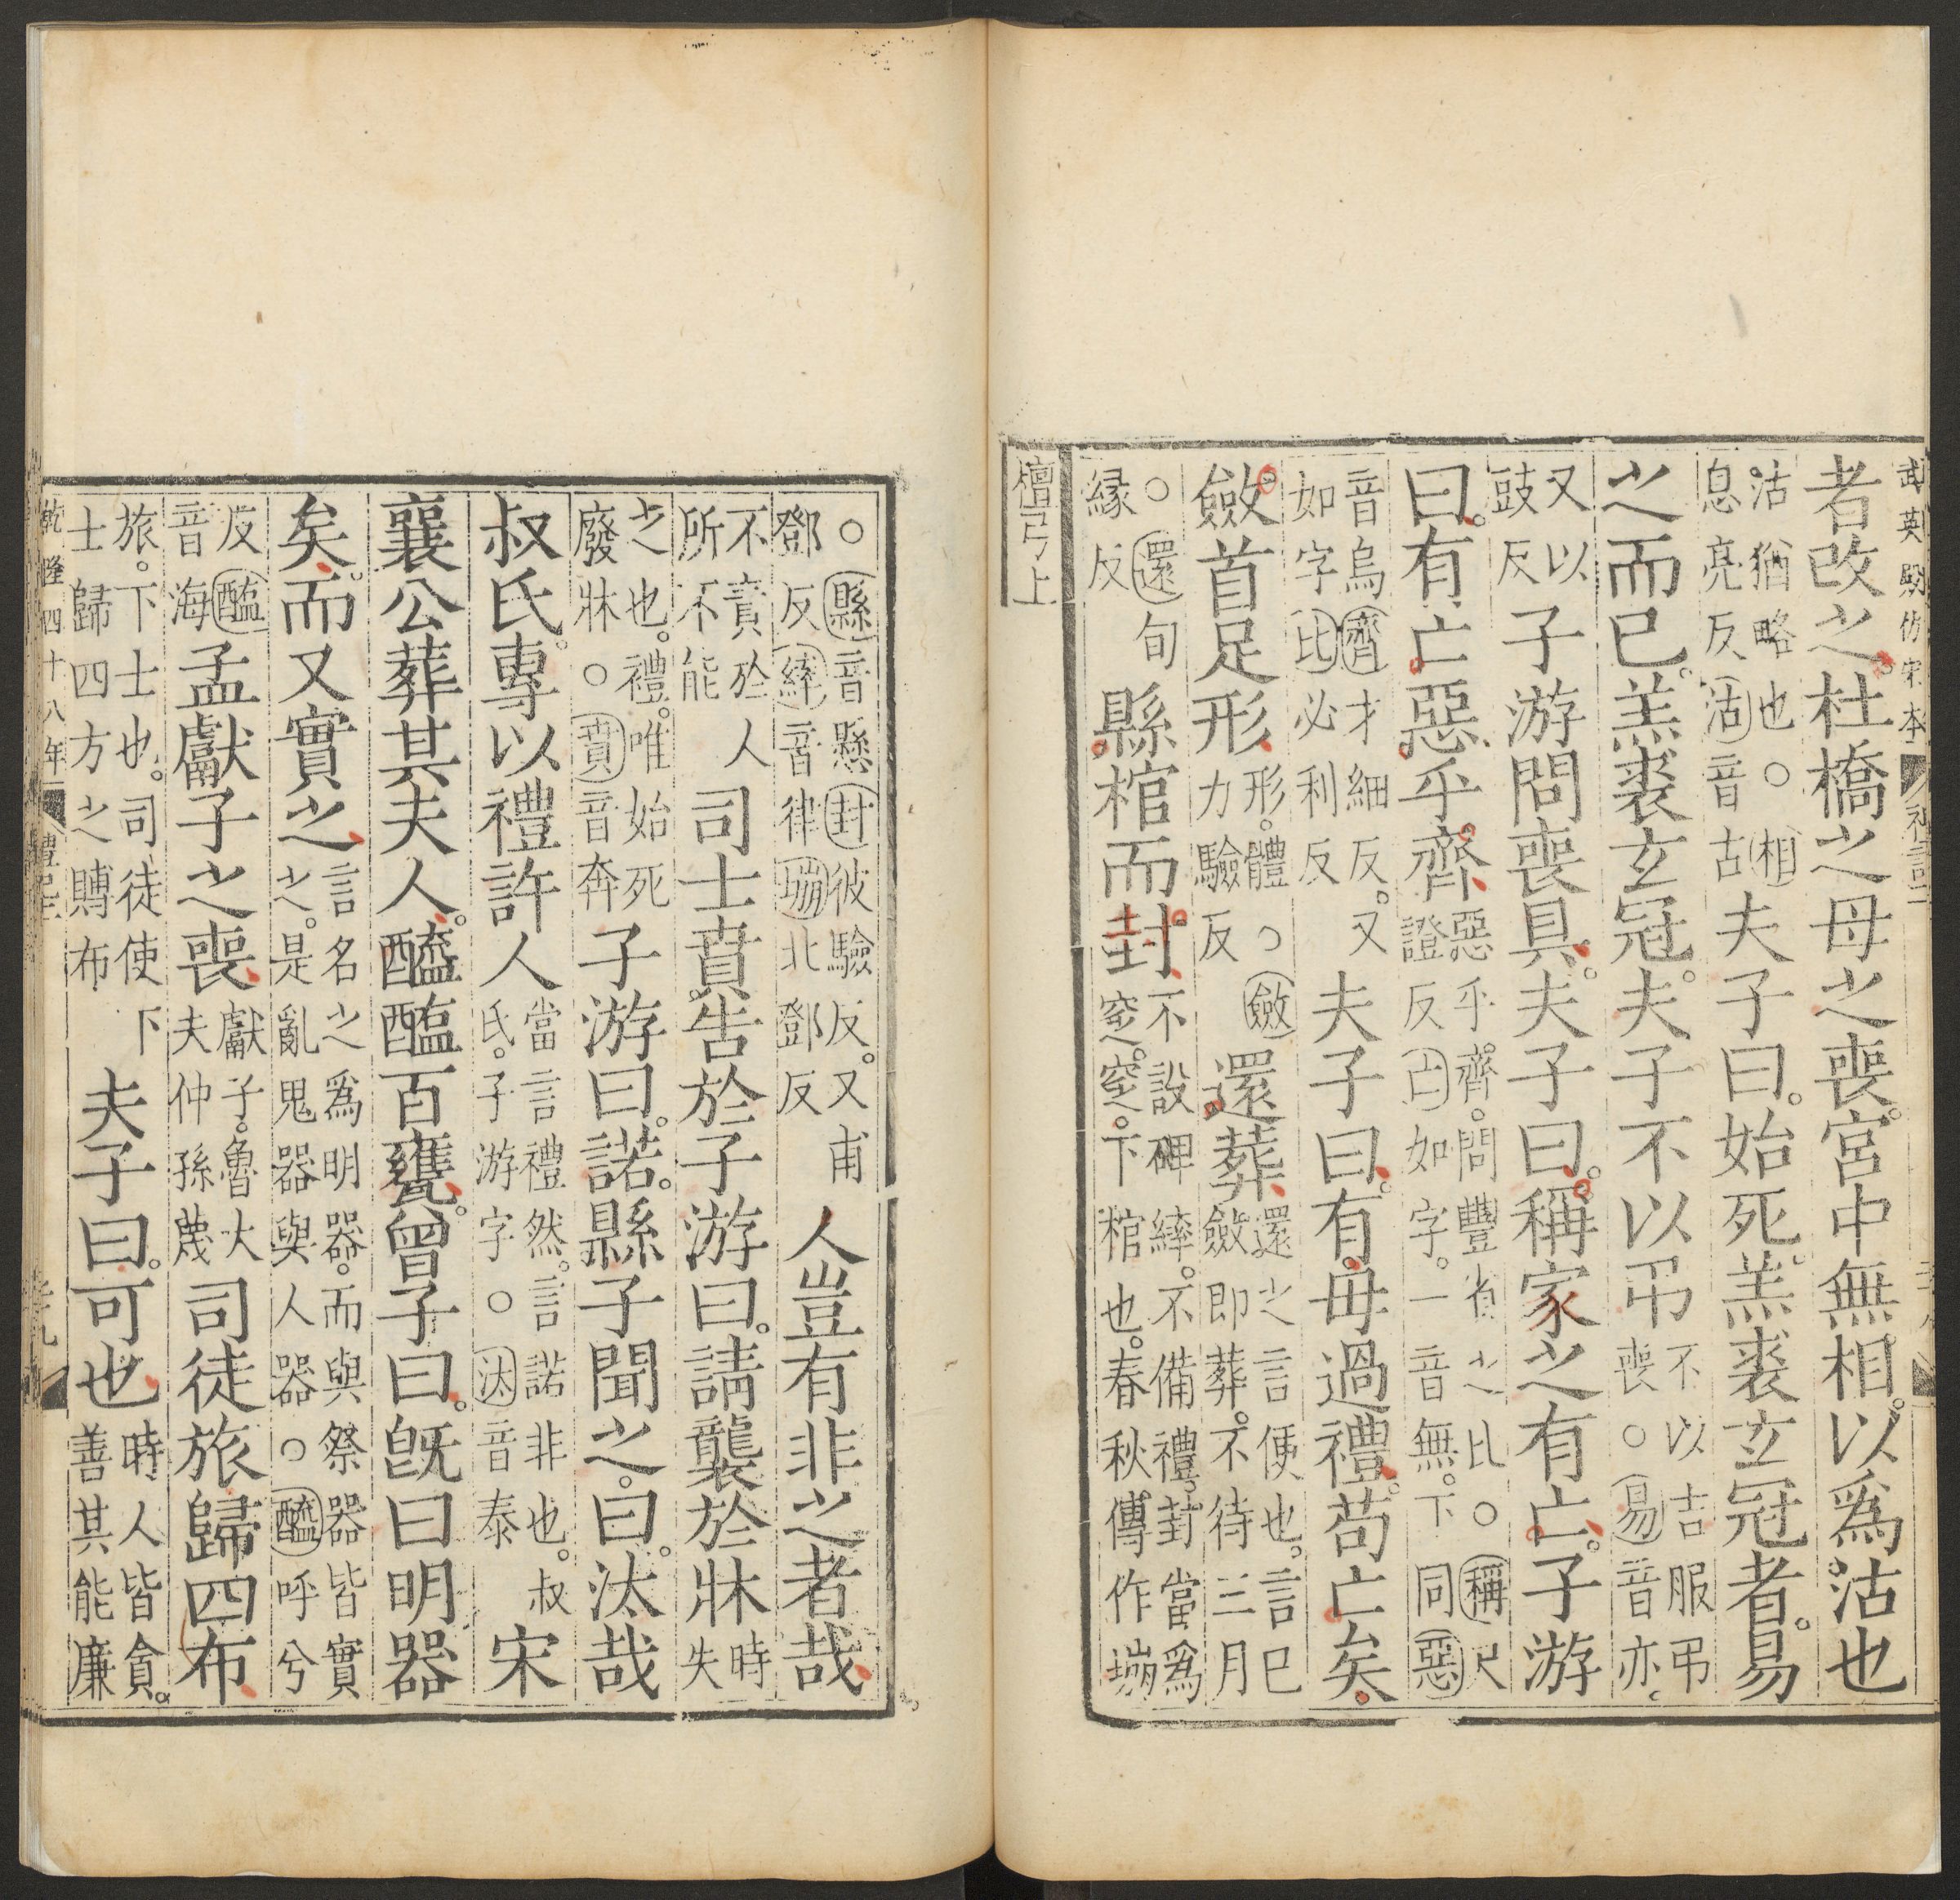 武英殿仿宋本
者改之杜橋之母之喪宮中無相以爲沽也
沽猶略也○相
息亮反沽音古
夫子曰始死羔裘玄冠者易
之而已羔裘玄冠夫子不以弔
不以吉服弔
喪○易音亦
又以
豉反
子游問喪具夫子曰稱家之有亡子游
曰有亡惡乎齊
惡乎齊問豐省之比○稱尺
證反亡如字一音無下同惡
音烏齊才細反又
如字比必利反
夫子曰有毋過禮苟亡矣
斂首足形
形體○斂
力驗反
還葬
還之言便也言已
斂即葬不待三月
○還句
緣反
縣棺而封
不設碑繂不備禮封當爲
窆窆下棺也春秋傳作塴
檀弓上
○縣音懸封彼驗反又甫
鄧反繂音律塴北鄧反
人豈有非之者哉
司士賁告於子游曰請襲於牀
時
失
不責於人
所不能
之也禮唯始死
廢牀○賁音奔
子游曰諾縣子聞之曰汰哉
叔氏專以禮許人
當言禮然言諾非也叔
氏子游字○汰音泰
宋
襄公葬其夫人醯醢百甕曾子曰旣曰明器
矣而又實之
言名之爲明器而與祭器皆實
之是亂鬼器與人器○醯呼兮
反醢
音海
孟獻子之喪
獻子魯大
夫仲孫蔑
司徒旅歸四布
旅下士也司徒使下
士歸四方之賻布
夫子曰可也
時人皆貪
善其能廉
乾隆四十八年